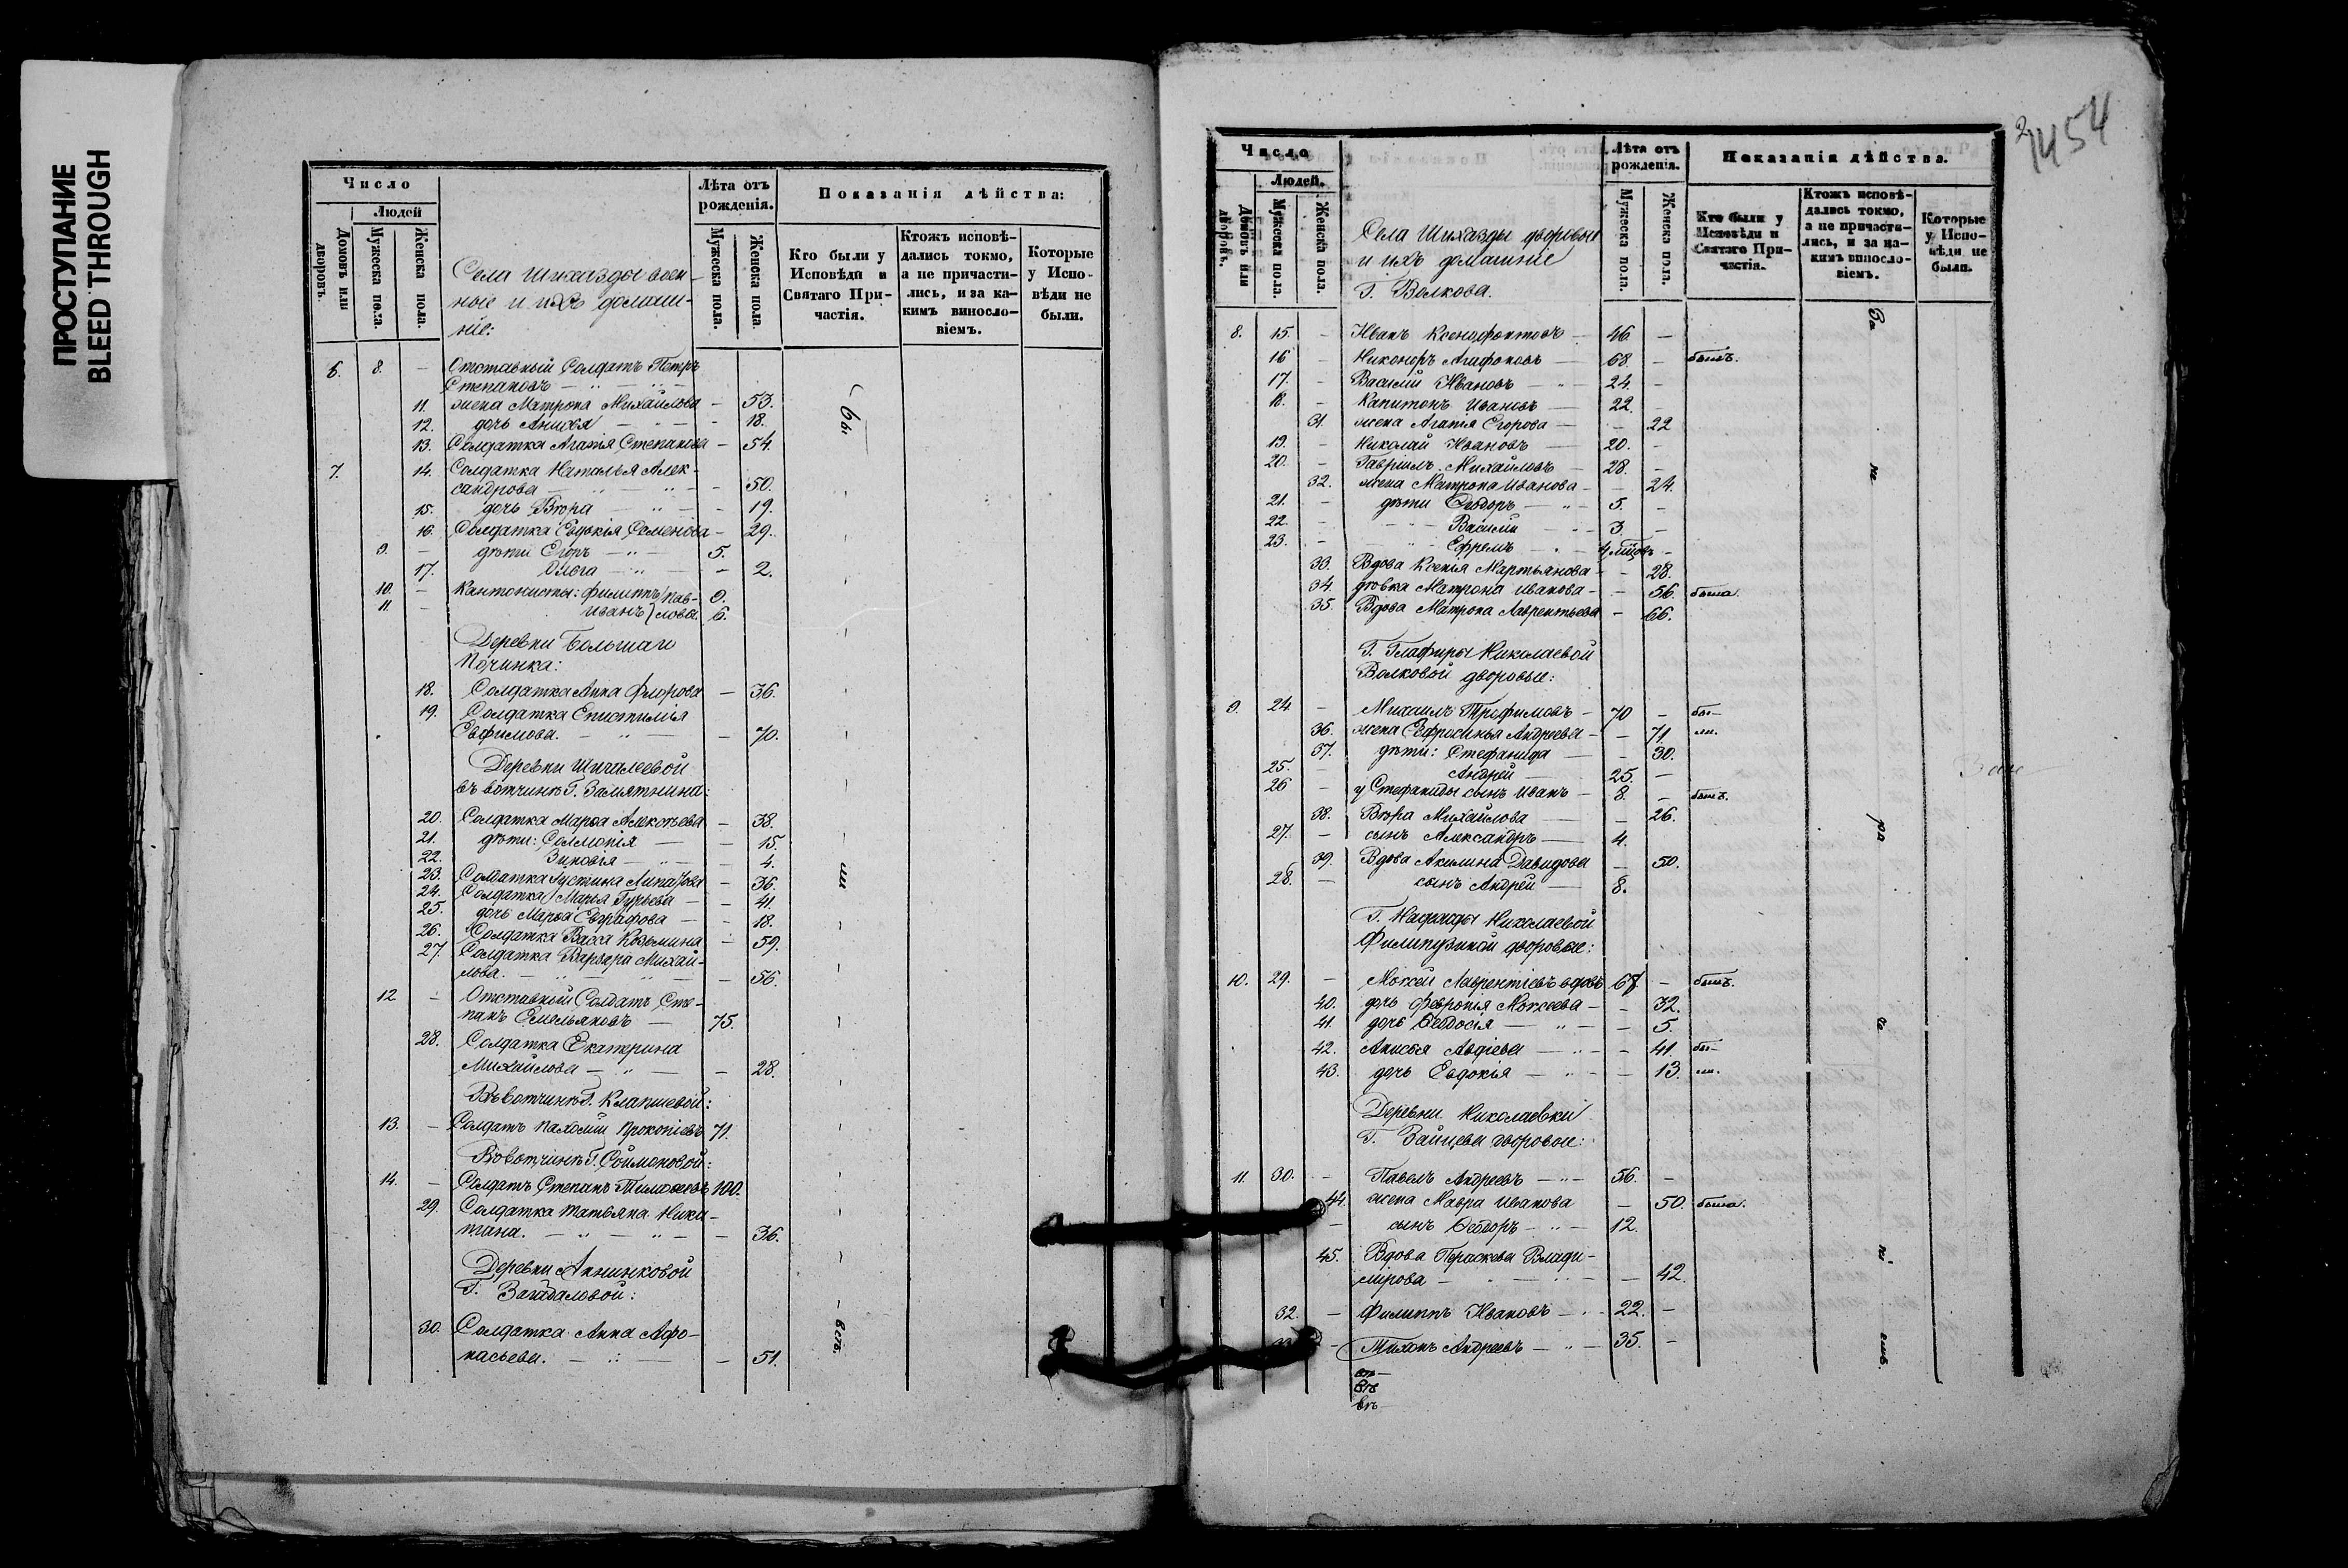 ПРОСТУПАНИЕ
BLEED THROUGH
Число
Людей
Домовъ или дворовъ.
Мужеска пола.
Женска пола.
Села Шихазды воен-
ные и ихъ домаш-
ніе:
Лѣта отъ рожденія.
Мужеска пола.
Женска пола.
Показанія дѣйства:
Кто были у Исповѣди и Святаго Причастія.
Ктожъ исповѣ-
дались токмо,
а не причасти-
лись, и за ка-
кимъ винословіемъ.
Которые у Исповѣди не были.
6. 8. — Отставный Солдатъ Петръ
Степановъ — " — " —
11. жена Матрона Михайлова — 53.
12. дочь Анисья — " — — 18.
13. Солдатка Агапія Степанова — 54.
7. 14. Солдатка Наталья Алек-
сандрова — " — " — — 50.
15. дочь Вѣра — " — — 19.
16. Солдатка Евдокія Семенова — 29.
9. — дѣти Егоръ — " — 5.
17. Ольга — " — — 2.
10. — Кантонисты: Филиппъ } Пав- 9.
11. — Иванъ } ловы. 6.
Деревни Большаго
Починка:
18. Солдатка Анна Флорова — 36.
19. Солдатка Епистимія
Евфимова. — " — — 70.
Деревни Шичалеевой
въ вотчинѣ Г. Замятнина:
20. Солдатка Марѳа Алексѣева — 38.
21. дѣти: Соломонія — — 15.
22. Зиновія — " — — 4.
23. Солдатка Устина — 36.
24. Солдатка Марья Гурьева — — 41.
25. дочь Марѳа Евграфова — — 18.
26. Солдатка Васса Козьмина — 59.
27. Солдатка Варвара Михай-
лова. — " — " — — 56.
12 — Отставный Солдатъ Сте-
панъ Емельяновъ — 75.
28. Солдатка Екатерина
Михайлова — " — — 28.
Въ вотчинѣ Г. Клапшевой:
13. — Солдатъ Пахомій Прокопіевъ 71.
Въ вотчинѣ Г. Соймоновой:
14. — Солдатъ Степанъ Тимоѳеевъ 100.
29. Солдатка Татьяна Ники-
тина. — " — " — — 36.
Деревни Акнинковой
Г.
30. Солдатка Анна Афо-
насьева. — " — — 51.
бы
ли
всѣ.
2
1454
Число
Людей.
Домовъ или дворовъ.
Мужеска пола.
Женска пола.
Села Шихазды дворовые
и ихъ домашніе
Г. Волкова.
Лѣта отъ рожденія.
Мужеска пола.
Женска пола.
Показанія дѣйства.
Кто были у
Исповѣди и
Святаго При-
частія.
Ктожъ исповѣ-
дались токмо,
а не причасти-
лись, и за ка-
кимъ винословіемъ.
Которые
у Испо-
вѣди не
были.
8. 15. — Иванъ Ксенофонтовъ — 46. —
16 — Никоноръ Агафоновъ — 68. — былъ.
17. — Василій Ивановъ — " — 24. —
18. — Капитонъ Ивановъ — 22. —
31. жена Агапія Егорова — — 22
19. — Николай Ивановъ — 20. —
20. — Гавріилъ Михайловъ — 28. —
32. жена Матрона Иванова — — 24.
21. — дѣти Ѳеодоръ — " — 5. —
22. — Василій — " — 3. —
23. — Ефремъ — " — 4 мѣсяцъ —
33. Вдова Ксенія Мартьянова — — 28.
34. дѣвка Матрона Иванова — — 56. была.
35. Вдова Матрона Лаврентьева — 66.
Г. Глафиры Николаевой
Волковой дворовые:
9. 24 — Михаилъ Трофимовъ — 70 — бы—
36. жена Евфросинья Андреева — — 71. ли.
37. дѣти: Стефанида — — 30.
25. — Андрей — 25. —
26 — у Стефаниды сынъ Иванъ — 8. — былъ.
38. Вѣра Михайлова — — 26.
27. — сынъ Александръ — 4.
39. Вдова Акилина Давидова — 50.
28. — сынъ Андрей — 8.
Г. Николаевой
дворовые:
10. 29. — Моисей Лаврентіевъ вдовъ 67 — былъ.
40. дочь Февронія Моисеева — — 32.
41. дочь Ѳеодосія — " — — 5.
42. Анисья Авдіева — " — — 41. бы—
43. дочь Евдокія — " — — 13. ли.
Деревни Николаевки
Г. Зайцева дворовые:
11. 30. — Павелъ Андреевъ — " — 56. —
44. жена Мавра Иванова — 50. была.
— сынъ Ѳеодоръ — " — 12.
45. Вдова Параскева Влади-
мірова — " — — 42.
32. — Филиппъ Ивановъ — " — 22. —
— Тихонъ Андреевъ — " — 35. —
За
не
ра
че
ні
емъ.